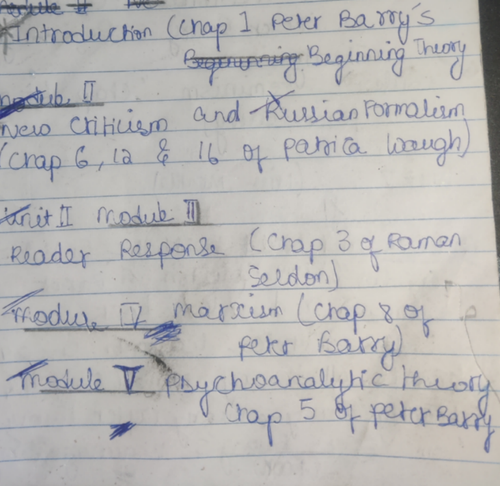 Module II
Introduction (Chap 1 Peter Barry's
Beginning Theory
Module II
New Criticism and Russian Formalism
(Chap 6, 12 & 16 of Patrica Waugh)
Unit II Module III
Reader Response (Chap 3 of Raman
Seldon)
Module IV Marxism (Chap 8 of
Peter Barry)
Module V Psychoanalytic Theory
Chap 5 of Peter Barry